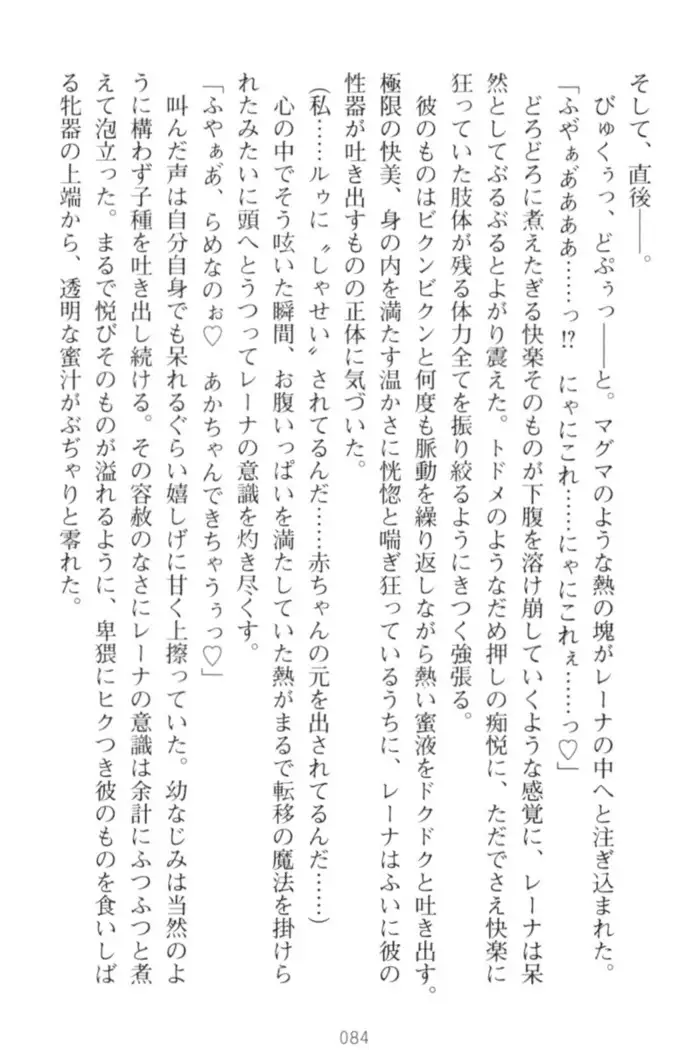 そして、直後――。
びゅくぅっ、どぷぅっ――と。マグマのような熱の塊がレーナの中へと注ぎ込まれた。
「ふゃぁあ゙あああ……っ!?　にゃにこれ……にゃにこれぇ……っ♡」
どろどろに煮えたぎる快楽そのものが下腹を溶け崩していくような感覚に、レーナは呆
然としてぶるぶるとよがり震えた。トドメのようなだめ押しの痴悦に、ただでさえ快楽に
狂っていた肢体が残る体力全てを振り絞るようにきつく強張る。
彼のものはビクンビクンと何度も脈動を繰り返しながら熱い蜜液をドクドクと吐き出す。
極限の快美、身の内を満たす温かさに恍惚と喘ぎ狂っているうちに、レーナはふいに彼の
性器が吐き出すものの正体に気づいた。
(私……ルゥに〝しゃせい〟されてるんだ……赤ちゃんの元を出されてるんだ……)
心の中でそう呟いた瞬間、お腹いっぱいを満たしていた熱がまるで転移の魔法を掛けら
れたみたいに頭へとうつってレーナの意識を灼き尽くす。
「ふやぁあ゙、らめなのぉ♡　あかちゃんできちゃうぅっ♡」
叫んだ声は自分自身でも呆れるぐらい嬉しげに甘く上擦っていた。幼なじみは当然のよ
うに構わず子種を吐き出し続ける。その容赦のなさにレーナの意識は余計にふつふつと煮
えて泡立った。まるで悦びそのものが溢れるように、卑猥にヒクつき彼のものを食いしば
る牝器の上端から、透明な蜜汁がぶぢゃりと零れた。
084